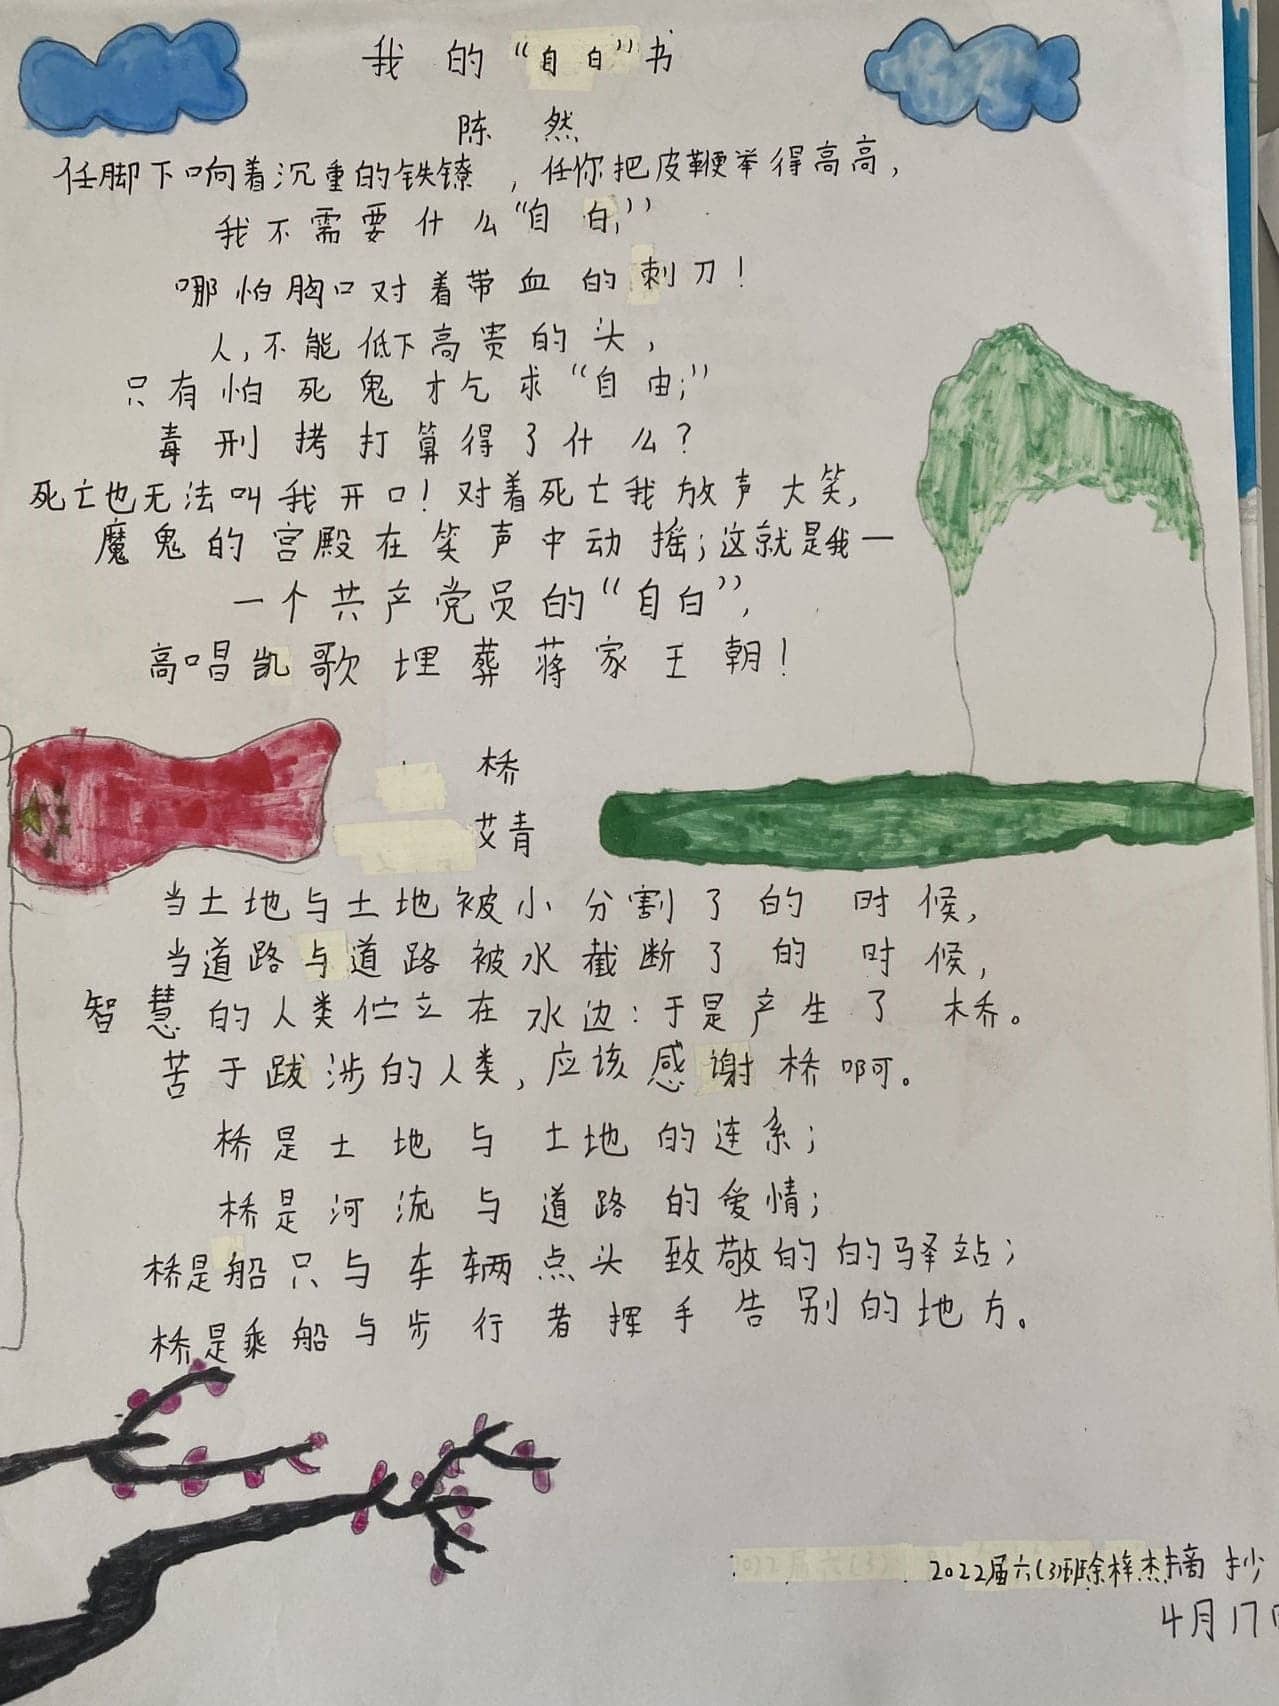 我的“自白”书
陈然
任脚下响着沉重的铁镣，任你把皮鞭举得高高，
我不需要什么“自白;”
哪怕胸口对着带血的刺刀！
人,不能低下高贵的头，
只有怕死鬼才乞求“自由;”
毒刑拷打算得了什么？
死亡也无法叫我开口！对着死亡我放声大笑,
魔鬼的宫殿在笑声中动摇；这就是我一
一个共产党员的“自白”,
高唱凯歌埋葬蒋家王朝！
桥
艾青
当土地与土地被小分割了的时候,
当道路与道路被水截断了的时候,
智慧的人类伫立在水边：于是产生了桥。
苦于跋涉的人类,应该感谢桥啊。
桥是土地与土地的连系；
桥是河流与道路的爱情；
桥是船只与车辆点头致敬的的驿站；
桥是乘船与步行者挥手告别的地方。
2022届六(3)班徐梓杰摘抄
4月17日